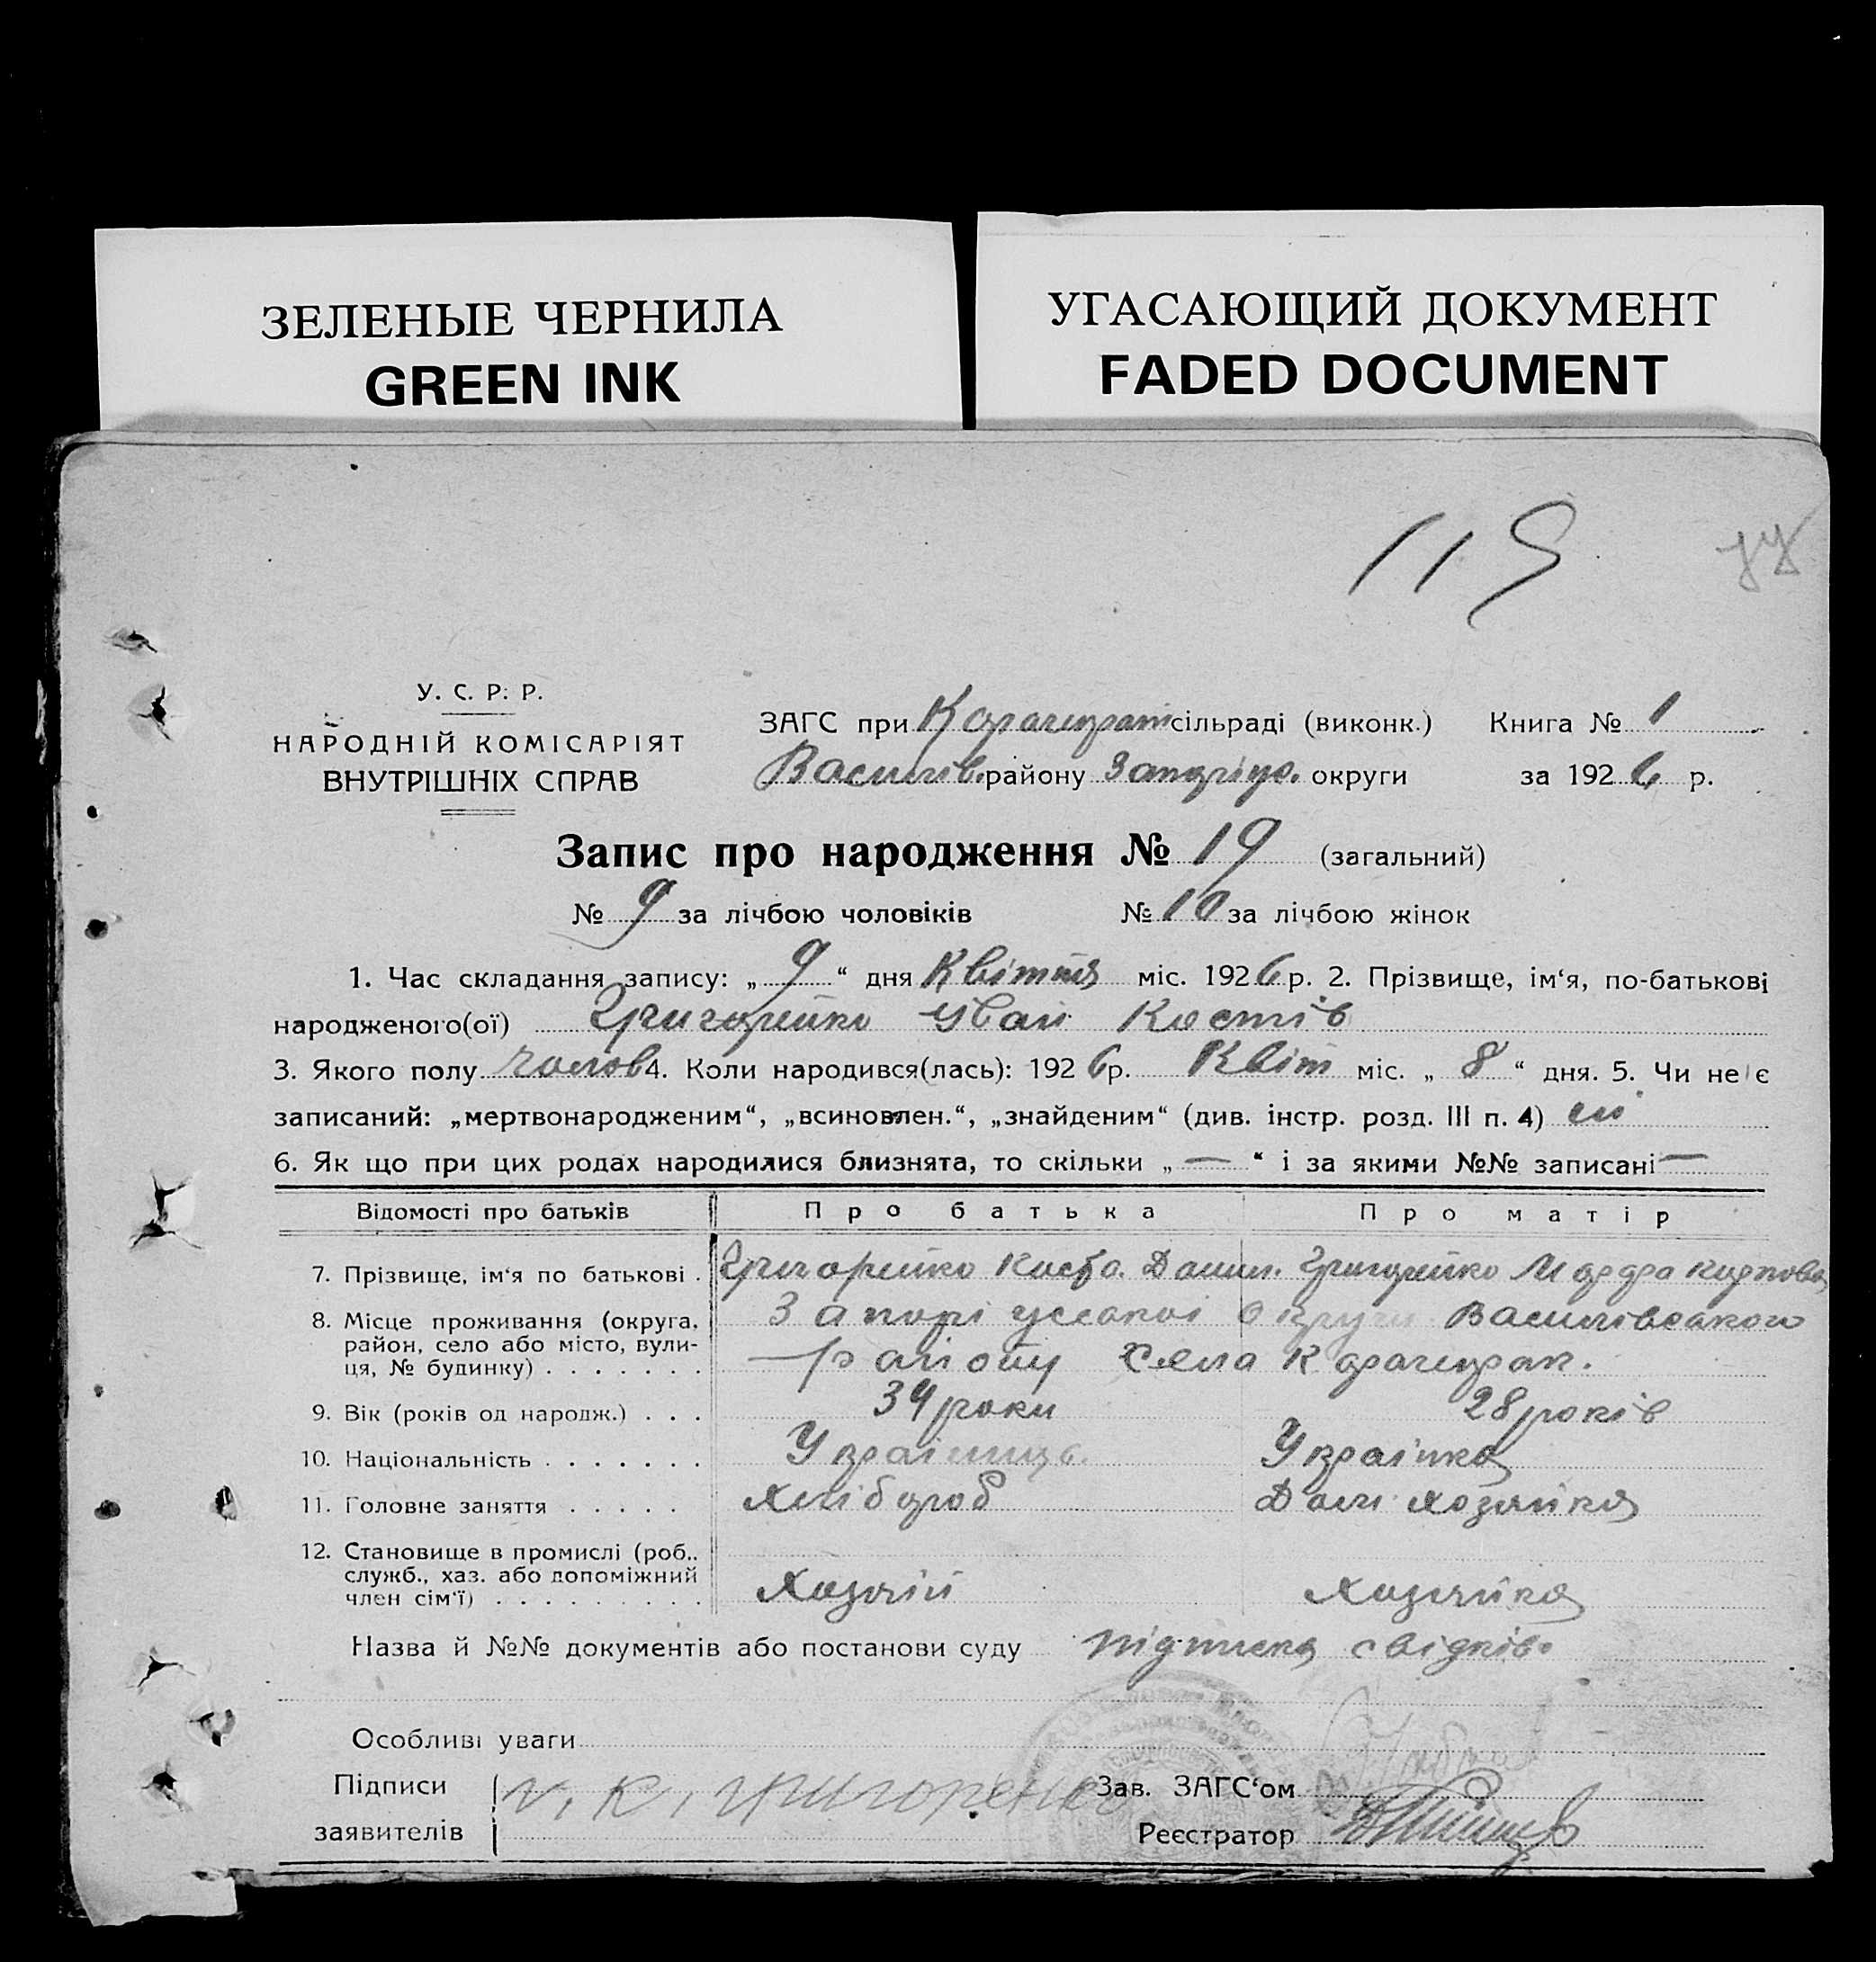 ЗЕЛЕНЫЕ ЧЕРНИЛА
GREEN INK
УГАСАЮЩИЙ ДОКУМЕНТ
FADED DOCUMENT
119
У. С. Р. Р.
НАРОДНІЙ КОМІСАРІЯТ
ВНУТРІШНІХ СПРАВ
ЗАГС при Карачекрат сільраді (виконк.) Книга № 1
Василів. району Запоріцо. округи за 1926 р.
Запис про народження № 19 (загальний)
№ 9 за лічбою чоловіків № 10 за лічбою жінок
1. Час складання запису: „ 9 “ дня Квітня міс. 1926 р. 2. Прізвище, ім‘я, по-батькові
народженого(ої) Григорейко Іван Костів
3. Якого полу чолов 4. Коли народився(лась): 1926 р. Квіт міс. „ 8 “ дня. 5. Чи не є
записаний: „мертвонародженим“, „всиновлен.“, „знайденим“ (див. інстр. розд. III п. 4) ні
6. Як що при цих родах народилися близнята, то скільки „ — “ і за якими №№ записані —
Відомості про батьків Про батька Про матір
7. Прізвище, ім‘я по батькові . Григорейко Данил. Григорейко Карпова
8. Місце проживання (округа, район, село або місто, вули-ця, № будинку) . . . . . . . Округи Василівського
району Села Карачекрак.
9. Вік (років од народж.) . . . 34 роки 28 років
10. Національність . . . . . . . Українець. Українка
11. Головне заняття . . . . . Хлібороб Дом. хозяйка
12. Становище в промислі (роб.,
служб., хаз. або допоміжний
член сім‘ї) . . . . . . . . . Хозяїн Хозяйка
Назва й №№ документів або постанови суду підписка свідків.
Особливі уваги
Підписи И. К. Григоренко Зав. ЗАГС‘ом
заявителів Реєстратор